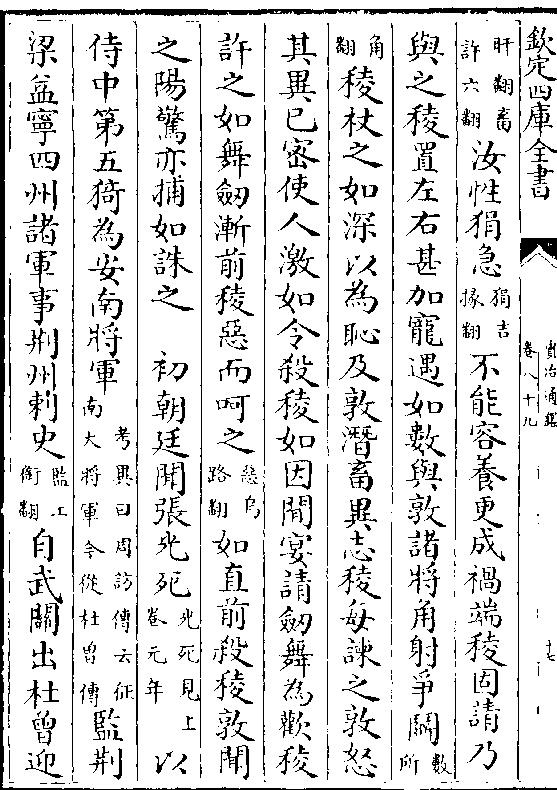 欽定四庫全書
資治通鑑
卷八十九
十七
盱翻畜許六翻汝性狷急狷吉掾翻不能容養更成禍端稜固請乃
與之稜置左右甚加寵遇如數與敦諸將角射爭鬭數所
角翻稜杖之如深以為恥及敦潛畜異志稜每諫之敦怒
其異已密使人激如令殺稜如因閒宴請劒舞為歡稜
許之如舞劒漸前稜惡而呵之惡烏路翻如直前殺稜敦聞
之陽驚亦捕如誅之　初朝廷聞張光死光死見上卷元年以
侍中第五猗為安南將軍考異曰周訪傳云征南大將軍今從杜曾傳監荆
梁益寧四州諸軍事荆州刺史監工銜翻自武關出杜曾迎